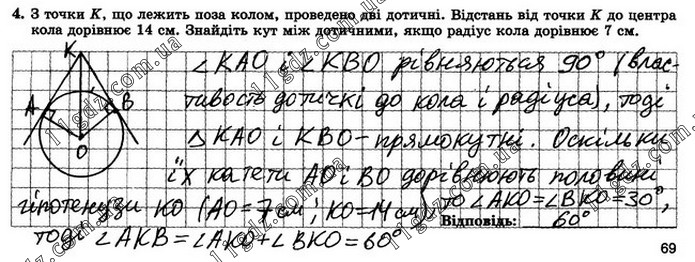 4. З точки K, що лежить поза колом, проведено дві дотичні. Відстань від точки K до центра
кола дорівнює 14 см. Знайдіть кут між дотичними, якщо радіус кола дорівнює 7 см.
K
A
B
O
∠KAO і ∠KBO рівняються 90° (влас-
тивость дотичкі до кола і радіуса), тоді
△KAO і KBO – прямокутні. Оскільки
їх катети AO і BO дорівнюють половині
гіпотенузи KO (AO = 7 см; KO = 14 см), то ∠AKO = ∠BKO = 30°,
тоді ∠AKB = ∠AKO + ∠BKO = 60°
Відповідь: 60°
69
11gdz.com.ua